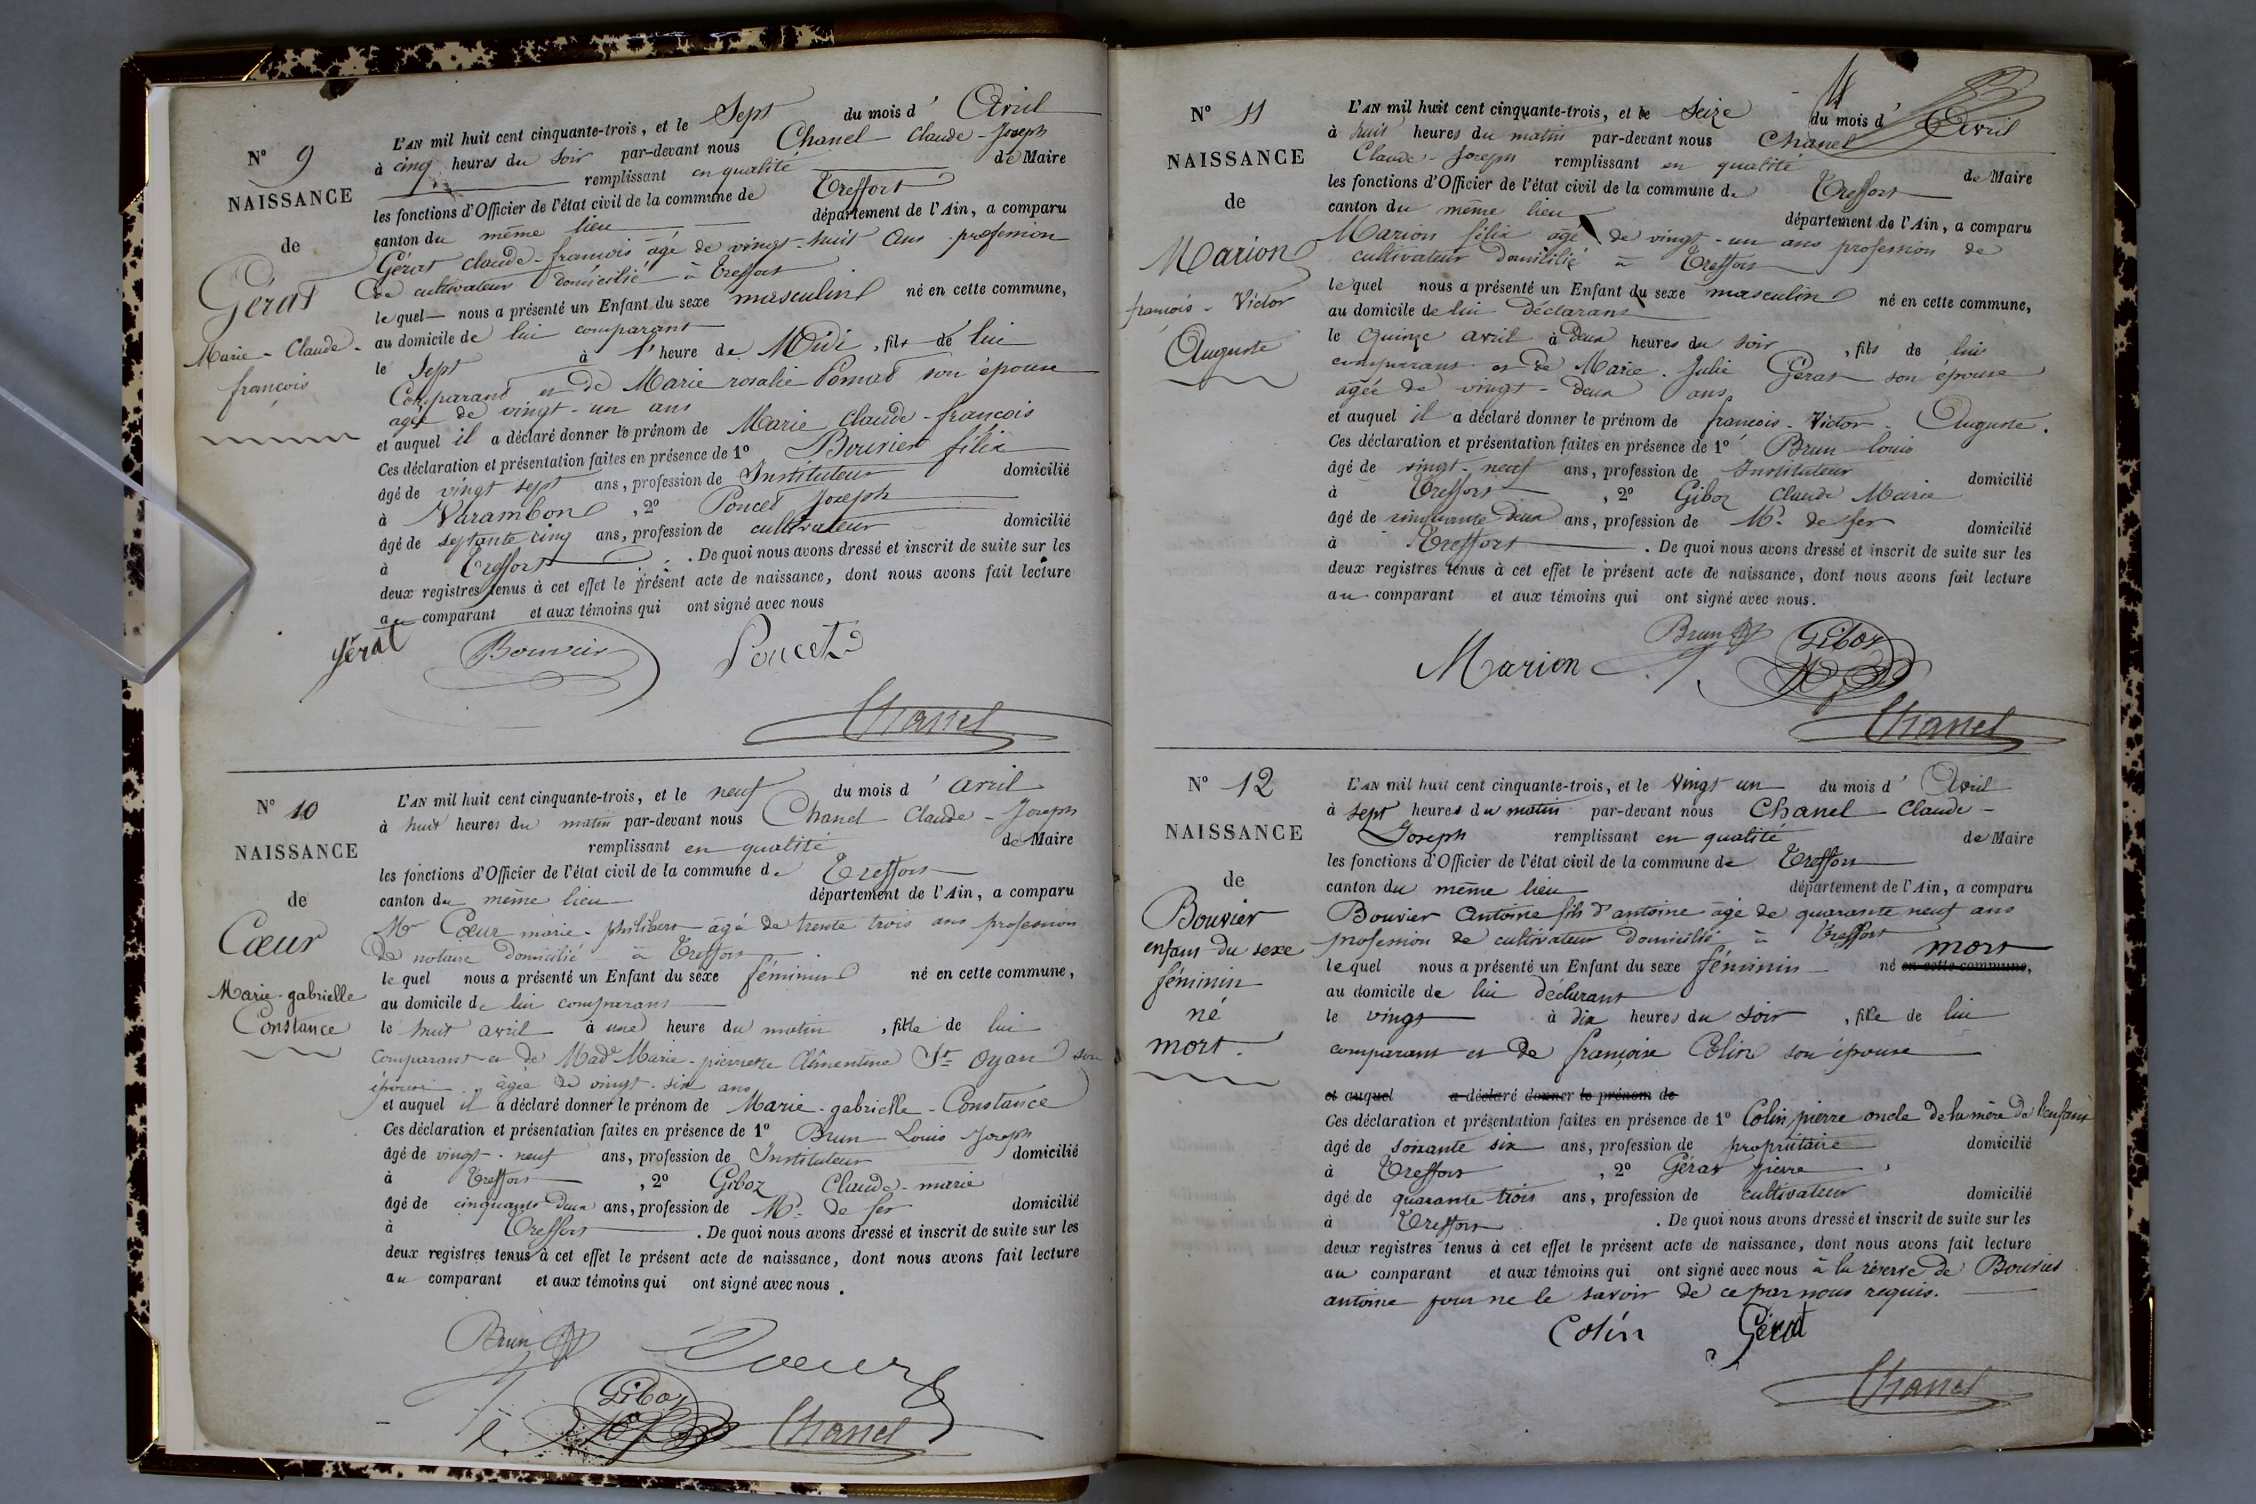 N° 9
NAISSANCE
de
Gérat
Marie - Claude -
françois
L'AN mil huit cent cinquante-trois, et le Sept du mois d' Avril
à cinq heures du soir par-devant nous Chanel Claude - Joseph
remplissant en qualité de Maire
les fonctions d'Officier de l'état civil de la commune de Treffort
canton du même lieu département de l'Ain, a comparu
Gérat claude - francois âgé de vingt-huit ans profession
de cultivateur domicilié à Treffort
lequel nous a présenté un Enfant du sexe masculin né en cette commune,
au domicile de lui comparant
le sept à l'heure de Midi, fils de lui
Comparant et de Marie rosalie son épouse
agée de vingt-un ans
et auquel il a déclaré donner le prénom de Marie Claude - françois
Ces déclaration et présentation faites en présence de 1° Bouvier félix
âgé de vingt sept ans, profession de Instituteur domicilié
à Varambon, 2° Poncet Joseph
âgé de septante cinq ans, profession de cultivateur domicilié
à Treffort. De quoi nous avons dressé et inscrit de suite sur les
deux registres tenus à cet effet le présent acte de naissance, dont nous avons fait lecture
au comparant et aux témoins qui ont signé avec nous
Gérat Bouvier Poncet
Chanel
N° 10
NAISSANCE
de
Cœur
Marie-gabrielle
Constance
L'AN mil huit cent cinquante-trois, et le neuf du mois d' avril
à huit heures du matin par-devant nous Chanel Claude - Joseph
remplissant en qualité de Maire
les fonctions d'Officier de l'état civil de la commune de Treffort
canton du même lieu département de l'Ain, a comparu
Mr Cœur marie-philibert âgé de trente trois ans profession
de notaire domicilié à Treffort
lequel nous a présenté un Enfant du sexe féminin né en cette commune,
au domicile de lui comparant
le huit avril à une heure du matin, fille de lui
comparant et de Made Marie-pierrette Clémentine St Oyan son
épouse âgée de vingt-six ans
et auquel il a déclaré donner le prénom de Marie-gabrielle-Constance
Ces déclaration et présentation faites en présence de 1° Brun Louis Joseph
âgé de vingt-neuf ans, profession de Instituteur domicilié
à Treffort, 2° Giboz Claude-marie
âgé de cinquante deux ans, profession de Md de fer domicilié
à Treffort. De quoi nous avons dressé et inscrit de suite sur les
deux registres tenus à cet effet le présent acte de naissance, dont nous avons fait lecture
au comparant et aux témoins qui ont signé avec nous.
Brun Cœur
Giboz
Chanel
N° 11
NAISSANCE
de
Marion
francois - Victor
Auguste
L'AN mil huit cent cinquante-trois, et le seize du mois d' Avril
à huit heures du matin par-devant nous Chanel
Claude-Joseph remplissant en qualité de Maire
les fonctions d'Officier de l'état civil de la commune de Treffort
canton du même lieu département de l'Ain, a comparu
Marion félix âgé de vingt-un ans profession de
cultivateur domicilié à Treffort
lequel nous a présenté un Enfant du sexe masculin né en cette commune,
au domicile de lui déclarant
le quinze avril à deux heures du soir, fils de lui
comparant et de Marie-Julie Gérat son épouse
agée de vingt-deux ans
et auquel il a déclaré donner le prénom de francois-Victor-Auguste.
Ces déclaration et présentation faites en présence de 1° Brun louis
âgé de vingt-neuf ans, profession de Instituteur domicilié
à Treffort, 2° Giboz Claude Marie
âgé de cinquante deux ans, profession de Md de fer domicilié
à Treffort. De quoi nous avons dressé et inscrit de suite sur les
deux registres tenus à cet effet le présent acte de naissance, dont nous avons fait lecture
au comparant et aux témoins qui ont signé avec nous.
Brun Giboz
Marion
Chanel
N° 12
NAISSANCE
de
Bouvier
enfant du sexe
féminin
né
mort.
L'AN mil huit cent cinquante-trois, et le vingt un du mois d' Avril
à sept heures du matin par-devant nous Chanel Claude-
Joseph remplissant en qualité de Maire
les fonctions d'Officier de l'état civil de la commune de Treffort
canton du même lieu département de l'Ain, a comparu
Bouvier Antoine fils d'antoine âgé de quarante neuf ans
profession de cultivateur domicilié à Treffort mort
lequel nous a présenté un Enfant du sexe féminin né en cette commune,
au domicile de lui déclarant
le vingt à dix heures du soir, fille de lui
comparant et de françoise Colin son épouse
et auquel a déclaré donner le prénom de
Ces déclaration et présentation faites en présence de 1° Colin pierre oncle de la mère de l'enfant
âgé de soixante six ans, profession de propriétaire domicilié
à Treffort, 2° Gérat pierre
âgé de quarante trois ans, profession de cultivateur domicilié
à Treffort. De quoi nous avons dressé et inscrit de suite sur les
deux registres tenus à cet effet le présent acte de naissance, dont nous avons fait lecture
au comparant et aux témoins qui ont signé avec nous à la réserve de Bouvier
antoine pour ne le savoir de ce par nous requis.
Colin Gérat
Chanel